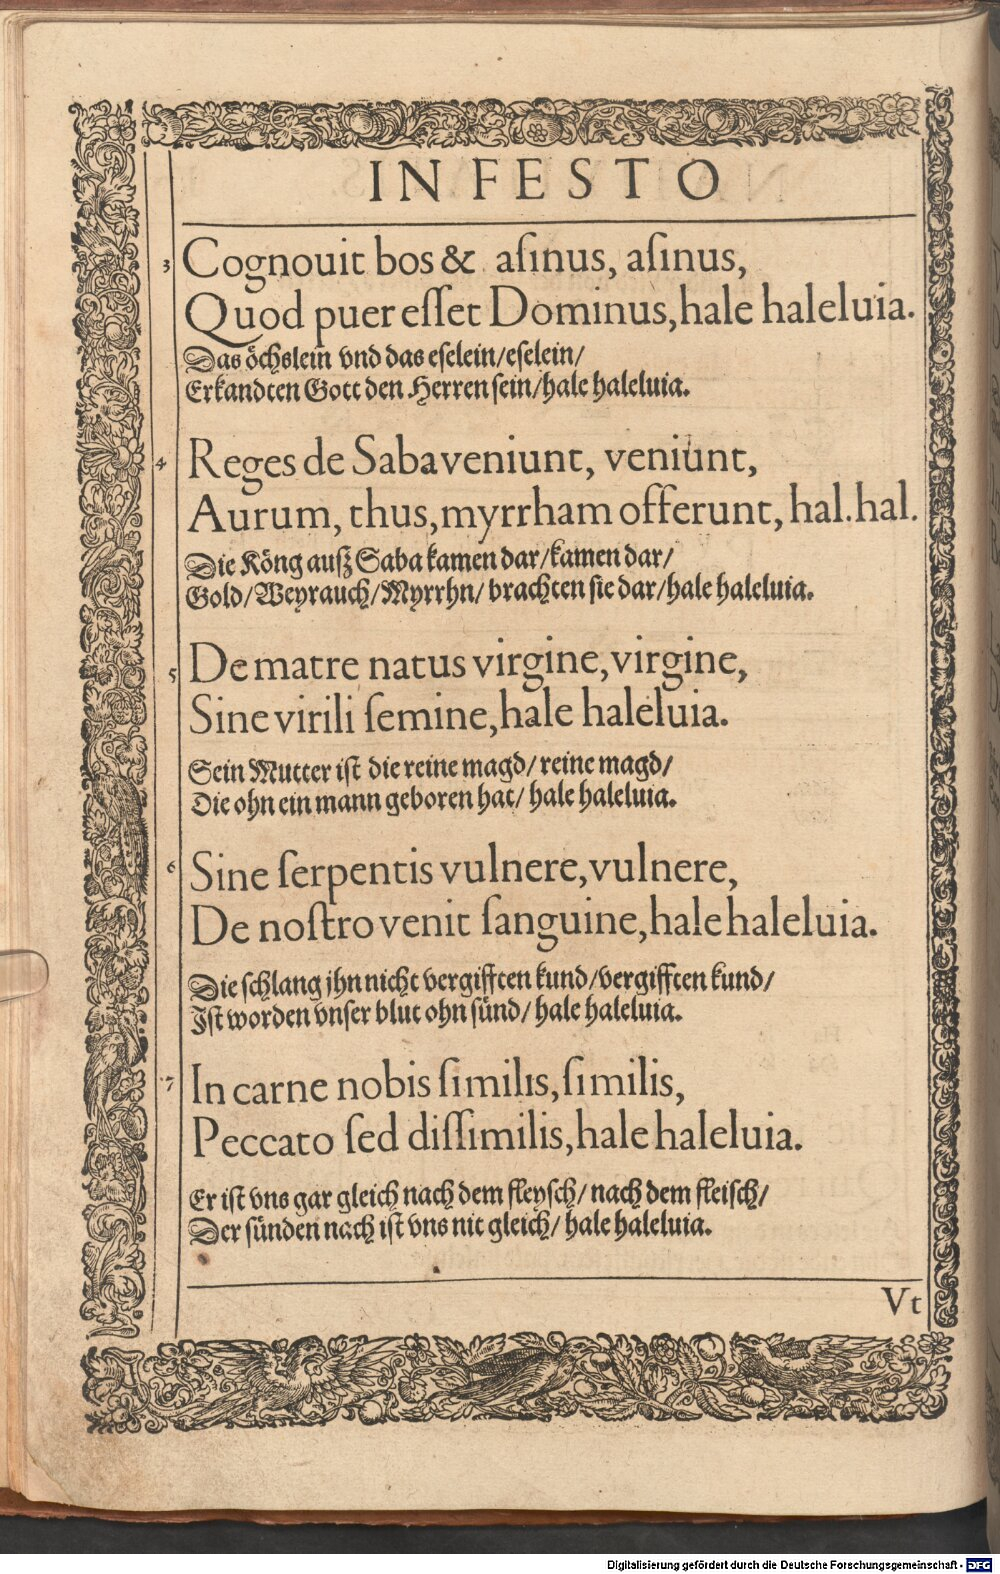 IN FESTO
3 Cognouit bos & aſinus, aſinus,
Quod puer eſſet Dominus, hale haleluia.
Das öchslein vnd das eselein/eselein/
Erkandten Gott den Herren sein/hale haleluia.
4 Reges de Saba veniunt, veniunt,
Aurum, thus, myrrham offerunt, hal. hal.
Die Köng auſz Saba kamen dar/kamen dar/
Gold/Weyrauch/Myrrhn/ brachten sie dar/hale haleluia.
5 De matre natus virgine, virgine,
Sine virili ſemine, hale haleluia.
Sein Mutter ist die reine magd/ reine magd/
Die ohn ein mann geboren hat/ hale haleluia.
6 Sine ſerpentis vulnere, vulnere,
De noſtro venit ſanguine, hale haleluia.
Die schlang jhn nicht vergifften kund/vergifften kund/
Ist worden vnser blut ohn sünd/ hale haleluia.
7 In carne nobis ſimilis, ſimilis,
Peccato ſed diſſimilis, hale haleluia.
Er ist vns gar gleich nach dem fleysch/ nach dem fleisch/
Der sünden nach ist vns nit gleich/ hale haleluia.
Vt
Digitalisierung gefördert durch die Deutsche Forschungsgemeinschaft - DFG